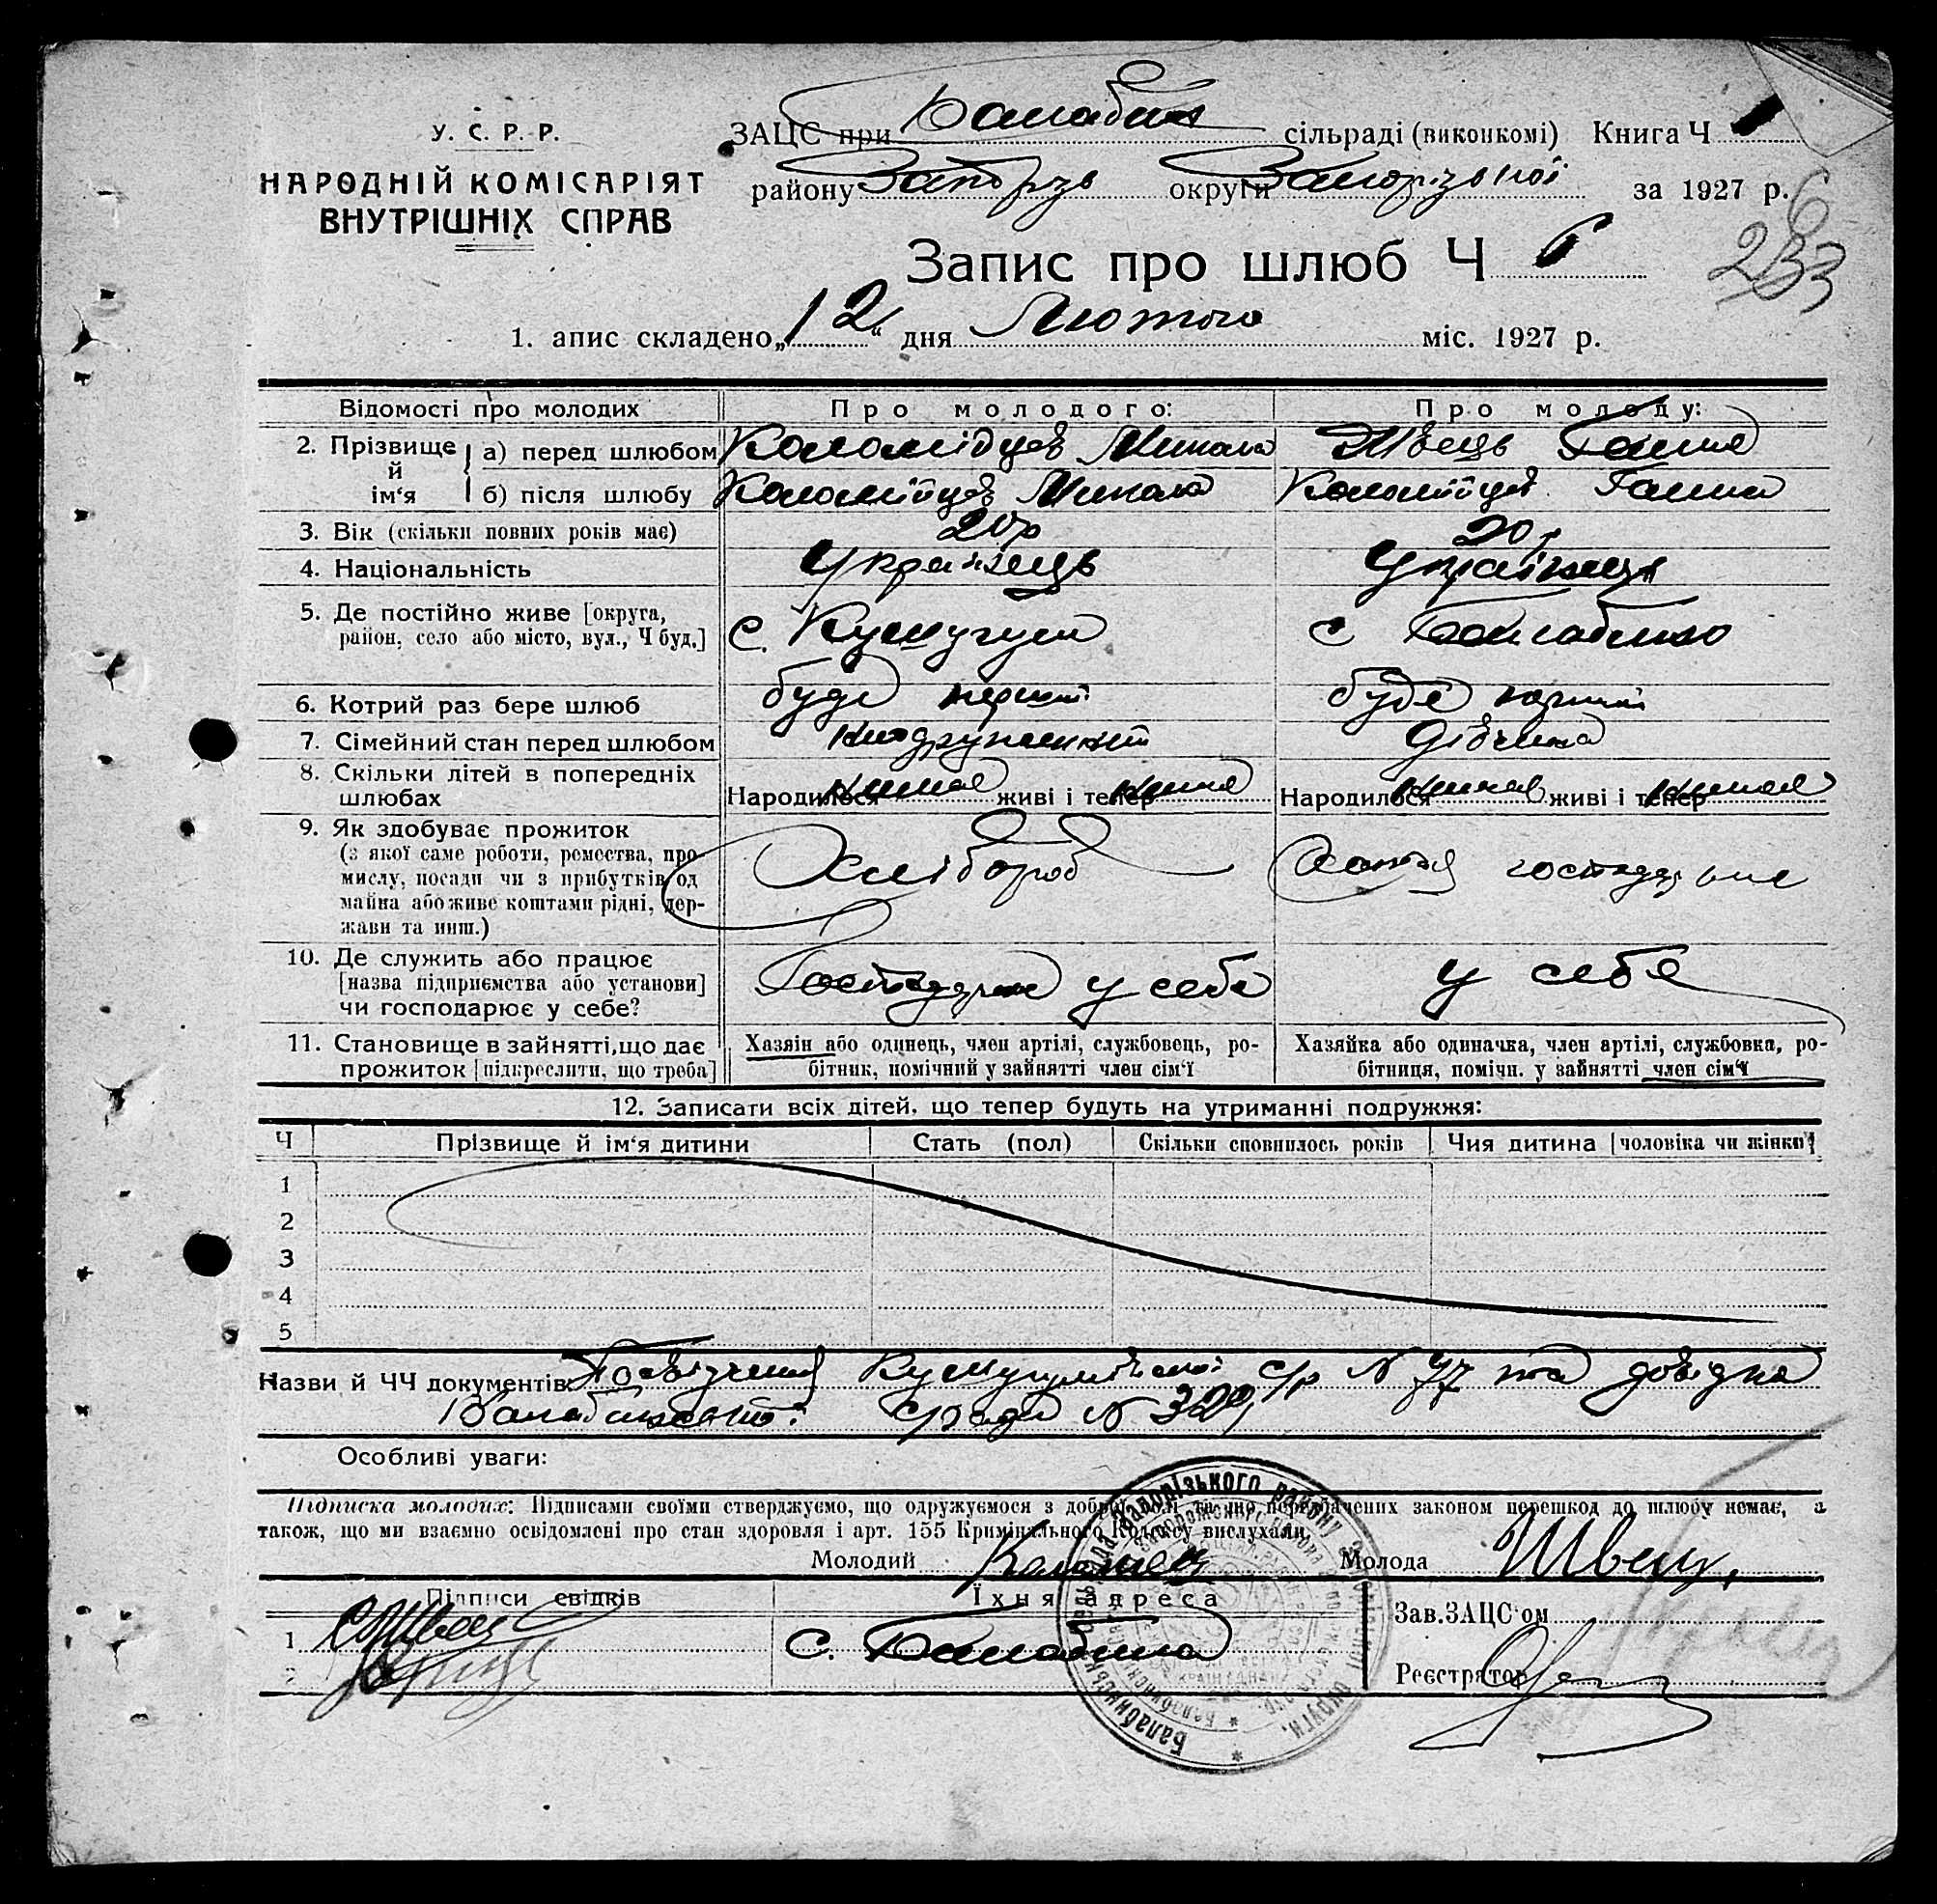 У. С. Р. Р.
НАРОДНІЙ КОМІСАРІЯТ
ВНУТРІШНІХ СПРАВ
ЗАЦС при Балабин сільраді (виконкомі) Книга Ч 1
району Запорізь округи Запорізької за 1927 р.
6
233
Запис про шлюб Ч 6
1. апис складено „12“ дня Лютого міс. 1927 р.
Відомості про молодих Про молодого: Про молоду:
2. Прізвище й ім‘я
а) перед шлюбом Коломійцев Микола Швець Ганна
б) після шлюбу Коломійцев Микола Коломійцев Ганна
3. Вік (скільки повних років має) 20р 20р
4. Національність Українець Українець
5. Де постійно живе [округа,
район, село або місто, вул., Ч буд.] с. Кушугум с Балабино
6. Котрий раз бере шлюб буде перший буде перший
7. Сімейний стан перед шлюбом нежонатий Дівчина
8. Скільки дітей в попередніх
шлюбах Народилося немає живі і тепер немає Народилося немає живі і тепер немає
9. Як здобуває прожиток
(з якої саме роботи, ремества, про-
мислу, посади чи з прибутків од
майна або живе коштами рідні, дер-
жави та инш.)
Хлібороб господарьне
10. Де служить або працює
[назва підприємства або установи]
чи господарює у себе?
Господарює у себе у себе
11. Становище в зайнятті, що дає
прожиток [підкреслити, що треба]
Хазяїн або одинець, член артілі, службовець, ро-
бітник, помічний у зайнятті член сім‘ї
Хазяйка або одиначка, член артілі, службовка, ро-
бітниця, помічн. у зайнятті член сім‘ї
12. Записати всіх дітей, що тепер будуть на утриманні подружжя:
Ч Прізвище й ім‘я дитини Стать (пол) Скільки сповнилось років Чия дитина [чоловіка чи жінки]
1
2
3
4
5
Назви й ЧЧ документів: Посвідчення Кушугумської с/р N 77 та довідка
Балабинської с/ради N 329
Особливі уваги:
Підписка молодих: Підписами своїми стверджуємо, що одружуємося з доброї волі та що передбачених законом перешкод до шлюбу немає, а
також, що ми взаємно освідомлені про стан здоровля і арт. 155 Кримінального Кодексу вислухали.
Молодий Молода Швець
Підписи свідків Їхня адреса
1 с. Балабина
2
Зав. ЗАЦС‘ом
Реєстратор